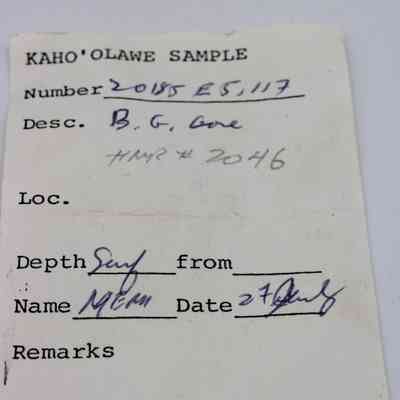 KAHO'OLAWE SAMPLE
Number 20185 E5,117
Desc. B. G. Core
HMR # 2046
Loc.
Depth Surf from
Name MEM Date 27 July
Remarks